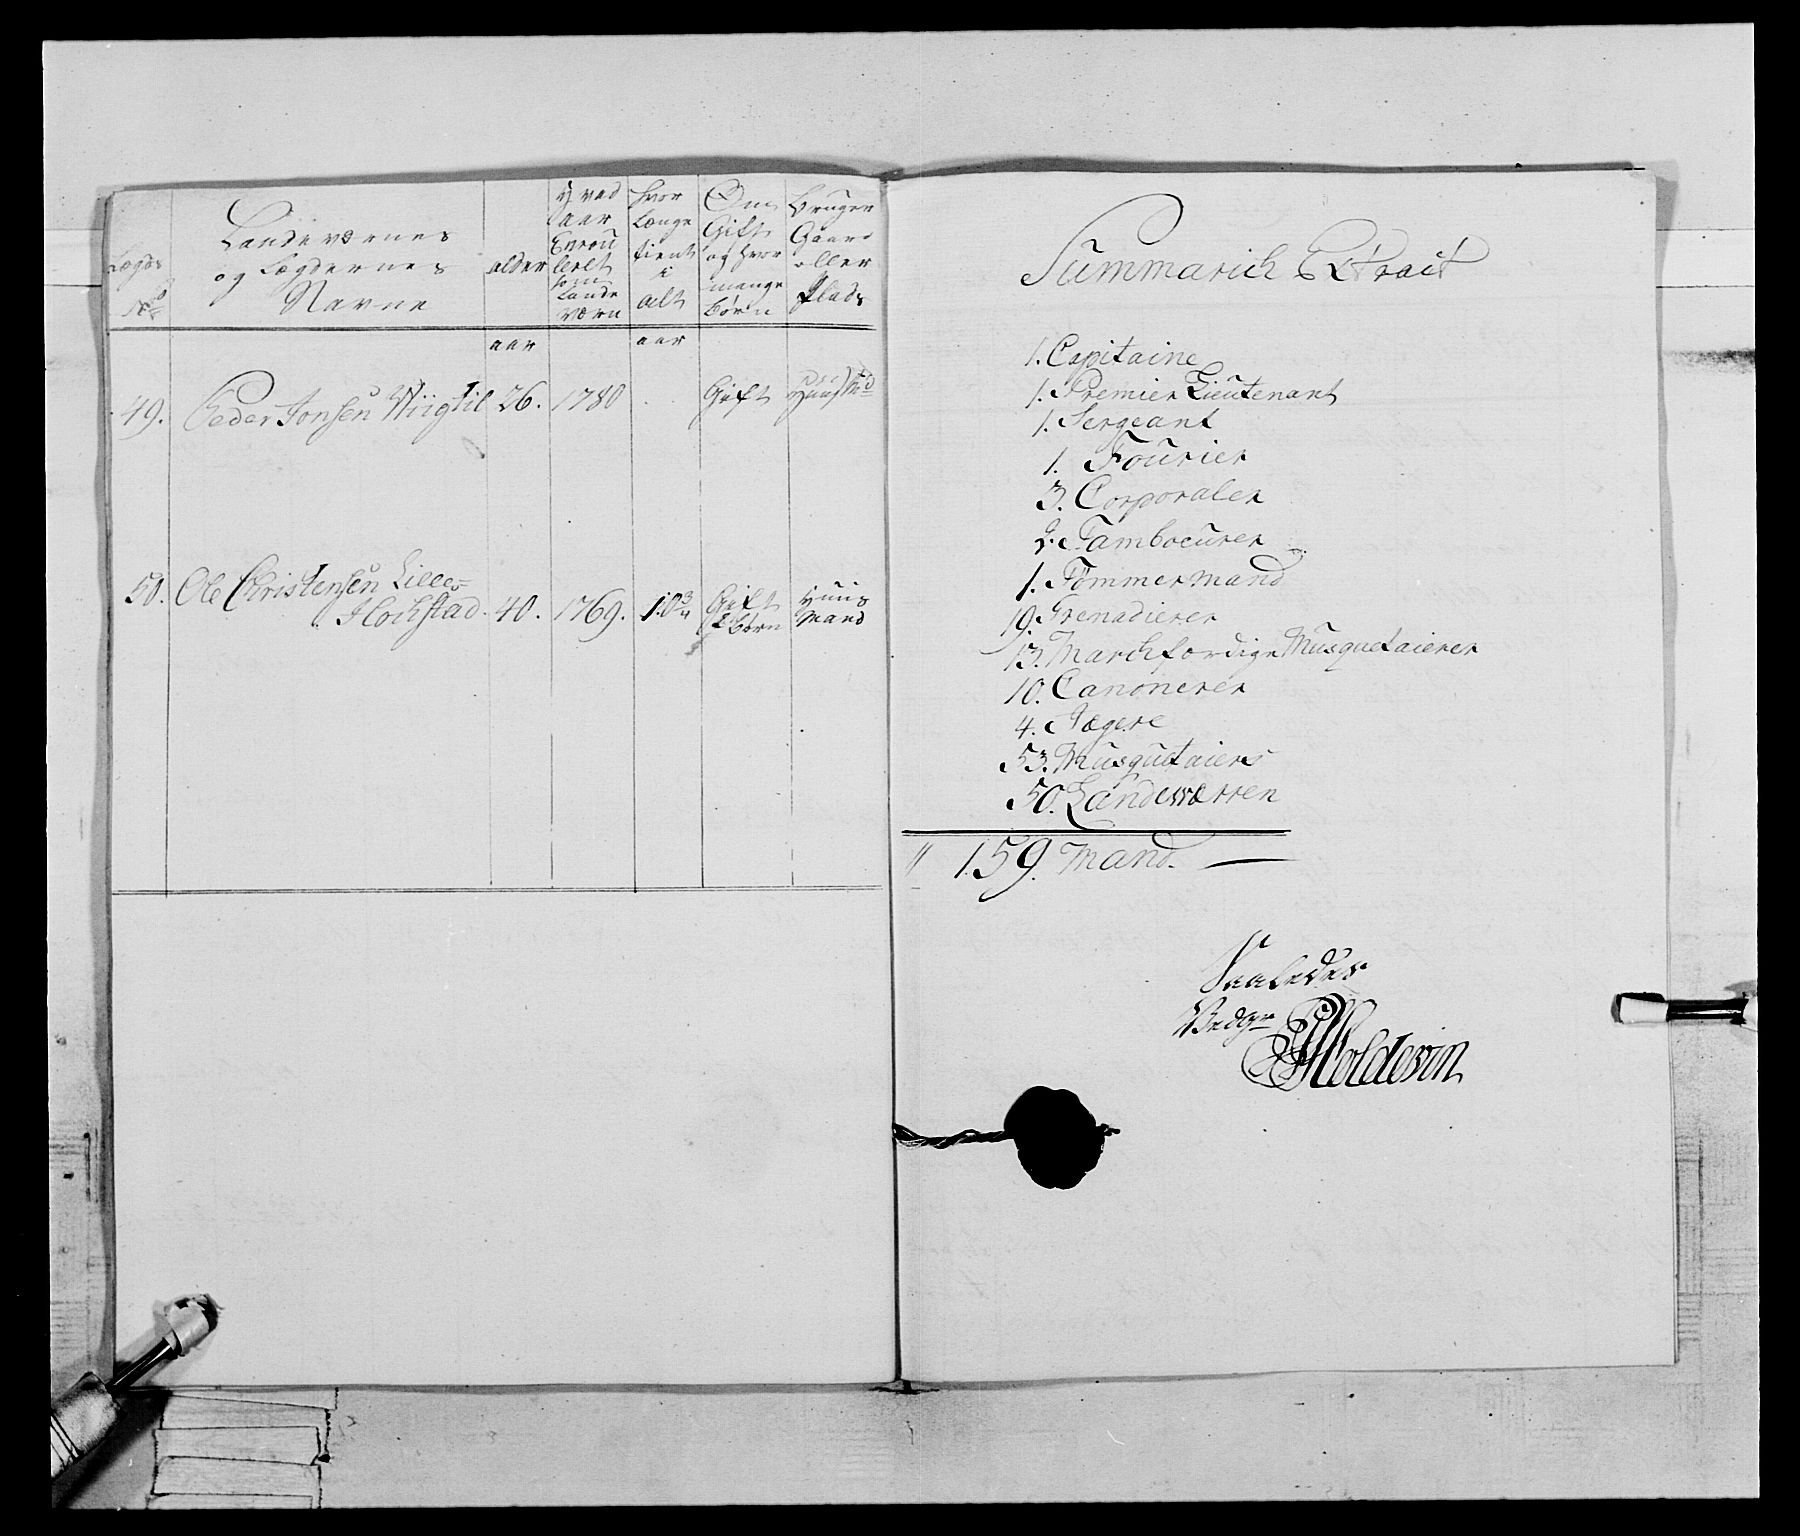 Lægds
No
Landeværnes
og Lægdernes
Navne
alder
Hvad
aar
Enrou
leret
som
Lande
værn
Hvor
Længe
tient
i
alt
Om
Gift
og hvor
mange
børn
Bruger
Gaard
eller
Plads
aar
aar
49. Peder Jonsen Wiigtil 26. 1780 Gift
50. Ole Christensen Lille=
Hochstad. 40. 1769. 10 3/4 Gift
2 børn
Huus
Mand
Summarich Extract
1. Capitaine
1. Premier Lieutenant
1. Sergeant
1. Fourier
3. Corporaler
2. Tambourer
1. Tömmermand
19. Grenadierer
13. Marchfærdige Musquetaierer
10. Canonerer
4. Jægere
53. Musquetaiers
50. Landeværren
159. Mand.
Saaledes
Moldevin